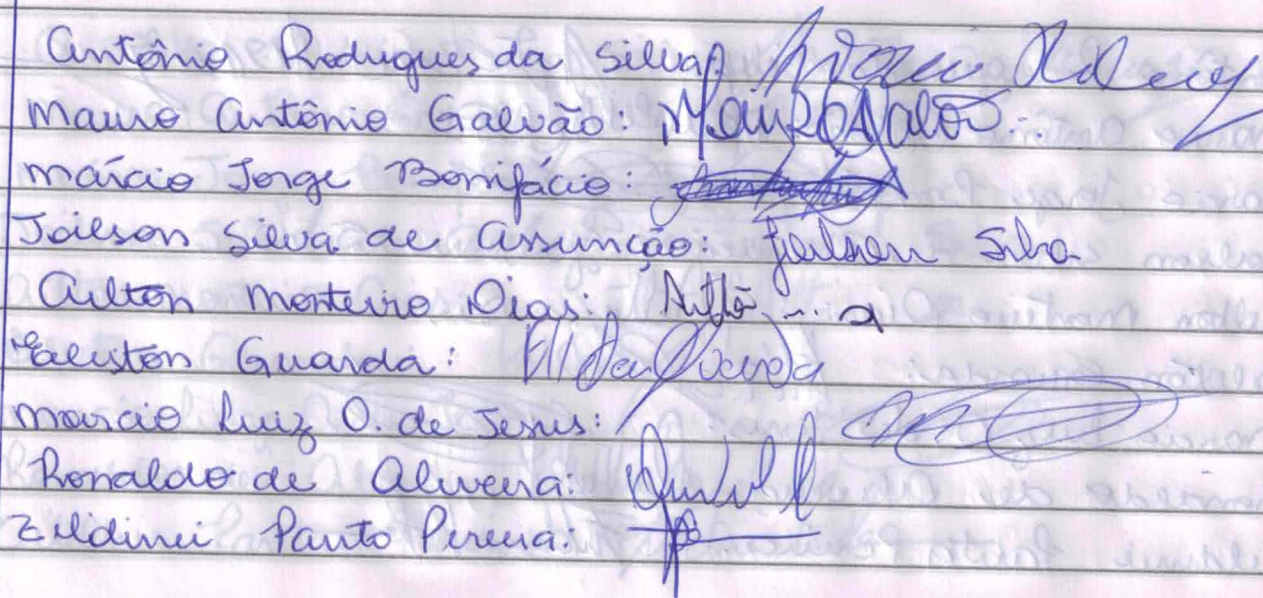 Antônio Rodrigues da Silva
Mauro Antônio Galvão: Mauro Galvão
Márcio Jorge Bonifácio:
Joilson Silva de Assunção: Joilson Silva
Ailton Monteiro Dias:
Guarda:
Marcio Luiz O. de Jesus:
Ronaldo de Oliveira:
Zildinei Panto Pereira: